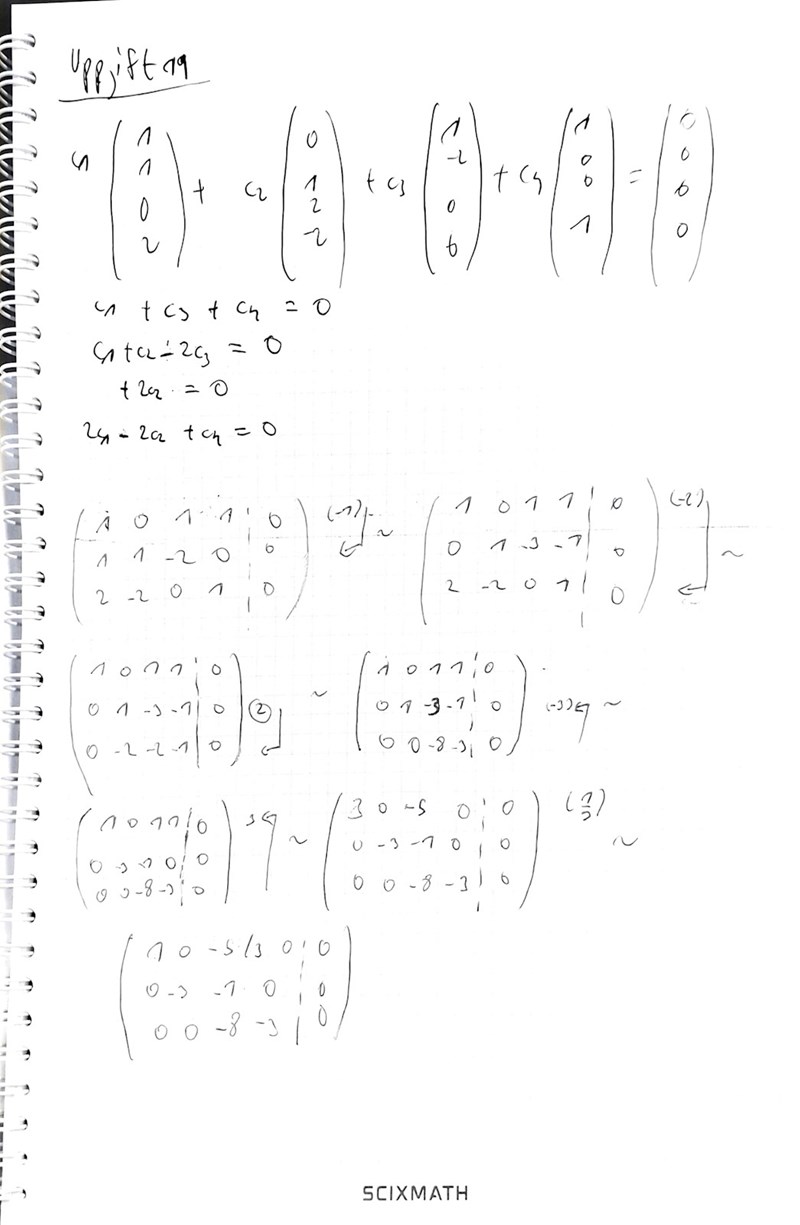 Uppgift 19
c1 (1 1 0 2) + c2 (0 1 2 -2) + c3 (1 -2 0 6) + c4 (1 0 0 1) = (0 0 0 0)
c1 + c3 + c4 = 0
c1 + c2 - 2c3 = 0
+ 2c2 = 0
2c1 - 2c2 + c4 = 0
( 1 0 1 1 | 0 ) (-1) ~ ( 1 0 1 1 | 0 ) (-2)
1 1 -2 0 | 0 0 1 -3 -1 | 0 ~
2 -2 0 1 | 0 2 -2 0 1 | 0
( 1 0 1 1 | 0 ) ~ ( 1 0 1 1 | 0 )
0 1 -3 -1 | 0 (2) 0 1 -3 -1 | 0 (-3) ~
0 -2 -2 -1 | 0 0 0 -8 -3 | 0
( 1 0 1 1 | 0 ) 3 ~ ( 3 0 -5 0 | 0 ) (1/3)
0 -3 -1 0 | 0 0 -3 -1 0 | 0 ~
0 0 -8 -3 | 0 0 0 -8 -3 | 0
( 1 0 -5/3 0 | 0 )
0 -3 -1 0 | 0
0 0 -8 -3 | 0
SCIXMATH